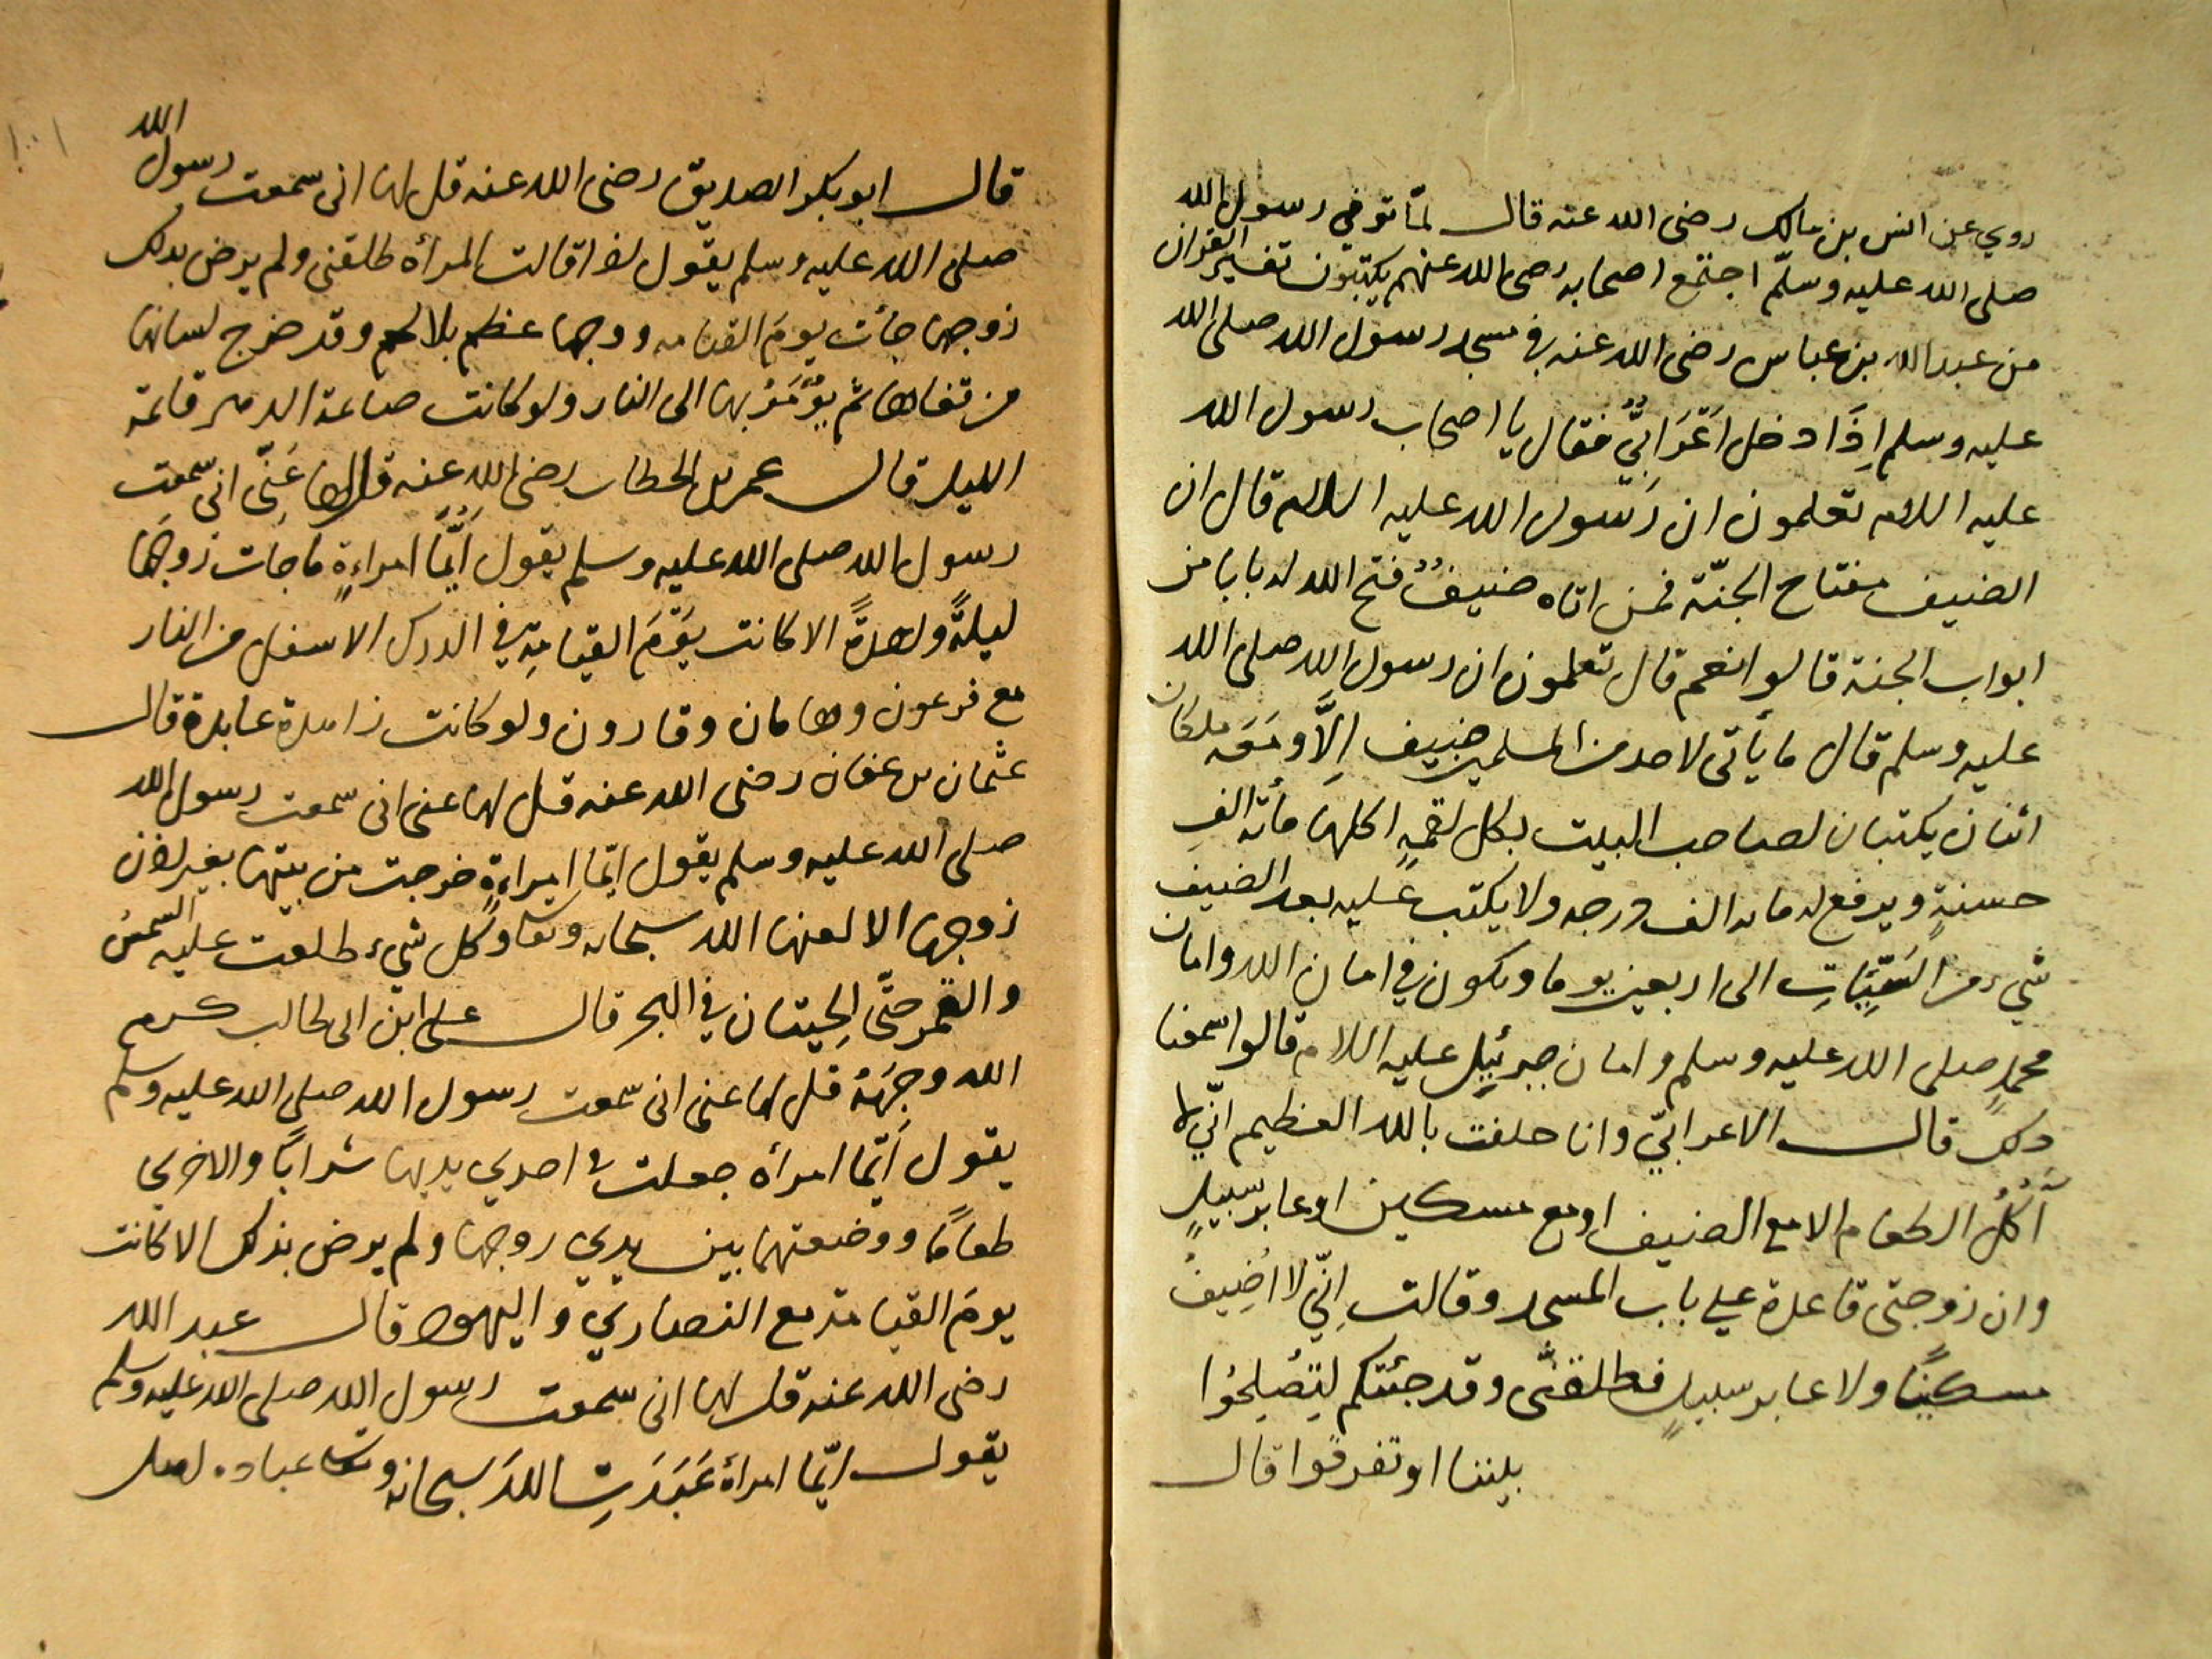 روي عن انس بن مالك رضى الله عنه قال لمّا توفي رسول الله
صلى الله عليه وسلّم اجتمع اصحابه رضى الله عنهم يكتبون تفسير القران
من عبد الله بن عباس رضى الله عنه في مسجد رسول الله صلى الله
عليه وسلم اِذَا دخل اَعْرَابِيٌّ فقال يا اصحاب رسول الله
عليه السلام تعلمون ان رَسول الله عليه السلام قال ان
الضيف مفتاح الجنّة فمن اتاه ضيفٌ فتح الله له بابا من
ابواب الجنة قالوا نعم قال تعلمون ان رسول الله صلى الله
عليه وسلم قال ما يأتى لاحد من المسلمين ضيف اِلَّا ومَعَه ملكان
اثنان يكتبان لصاحب البيت بكل لقمةٍ اكلها مأته الفِ
حسنةٍ ويرفع له مائه الف درجه ولا يكتب عليه بعد الضيف
شيء من السَيِّئاتِ الى اربعين يوما ويكون في امان الله وامان
محمدٍ صلى الله عليه وسلم وامان جبرئيل عليه السلام قالوا سمعنا
ذلك قال الاعرابيّ وانا حلفت بالله العظيم انّي لا
آكُلُ الطعام الا مع الضيف او مع مسكين او عابر سبيلٍ
وان زوجتى قاعدة على باب المسجد وقالت اِنّي لا اُضِيفُ
مسكينًا ولا عابر سبيلٍ فطلقنّى وقد جئتكم لِتُصْلِحُوا
بيننا او تفرقوا قال
قال ابو بكر الصديق رضى الله عنه قل لها انى سمعت رسول الله
صلى الله عليه وسلم يقول اذا قالت المرأه طلقنى ولم يرض بذلك
زوجها جأت يومَ القيامه ووجها عظم بلا لحم وقد خرج لسانها
من قفاها ثم يُؤْمَرُ بها الى النار ولو كانت صائمة الدهر قائمة
الليل قال عمر بن الخطاب رضى الله عنه قل لها عَنِّى انى سمعت
رسول الله صلى الله عليه وسلم يقول اَيَّمَا امراءةٍ ما جات زوجها
ليلةً واحدةً الا كانت يَوْمَ القيامةِ في الدرك الاسفل من النار
مع فرعون وهامان وقارون ولو كانت زاهدة عابدة قال
عثمان بن عفان رضى الله عنه قل لها عنى انى سمعت رسول الله
صلى الله عليه وسلم يقول ايّما امراءةٍ خرجت من بيتها بغير اذن
زوجها الا لعنها الله سبحانه وتعا وكل شيء طلعت عليه الشمسُ
والقمر حتَّى الحِيتان في البحر قال على ابن ابى طالب كرم
الله وجهَهُ قل لها عنى انى سمعت رسول الله صلى الله عليه وسلم
يقول اَيّما امرأه جعلت في احدي يديها شرابًا والاخري
طعامًا ووضعتهما بين يدي زوجها ولم يرض بذلك الا كانت
يومَ القيامة مع النصاري واليهود قال عبد الله
رضى الله عنه قل لها انى سمعت رسول الله صلى الله عليه وسلم
يقول ايّما امرأة عَبَدَتِ اللهَ سبحانه وتعا عباده